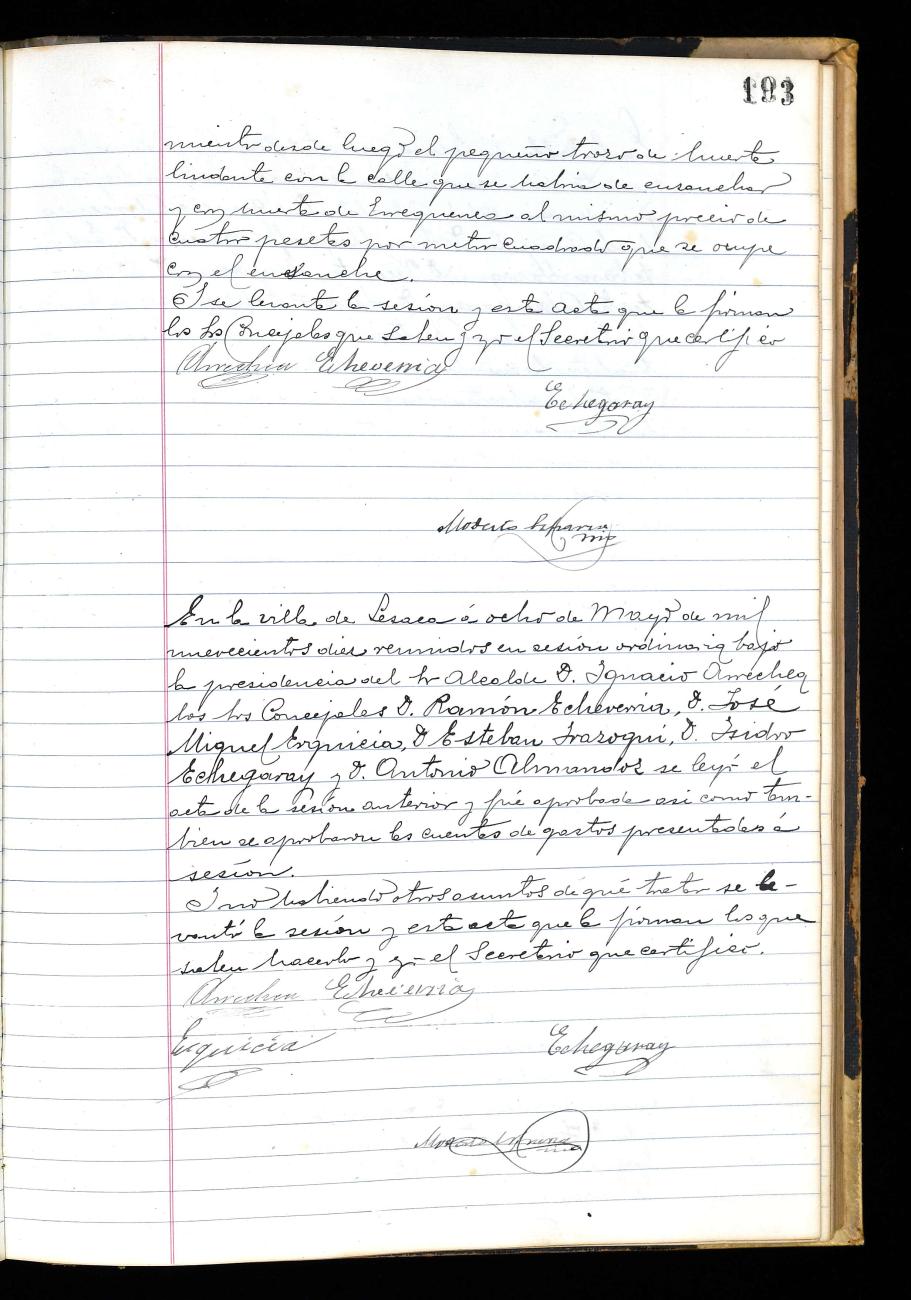 193
miento desde luego el pequeño trozo de huerta
lindante con la calle que se habria de ensanchar
y con huerta de Errequenea al mismo precio de
cuatro pesetas por metro cuadrado que se ocupe
con el ensanche.
I se levanta la sesión y esta acta que la firman
los Srs Concejales que saben y yo el Secretario que certifico
Arrechea Echeverria
Echegaray
Modesto Esparza
En la villa de Lesaca á ocho de Mayo de mil
nuevecientos diez reunidos en sesión ordinaria bajo
la presidencia del Sr Alcalde D. Ignacio Arrechea
los Srs Concejales D. Ramón Echeverria, D. José
Miguel Erquicia, D Esteban Irazoqui, D. Isidro
Echegaray y D. Antonio Almandoz se leyó el
acta de la sesión anterior y fué aprobada asi como tam-
bien se aprobaron las cuentas de gastos presentadas á
sesión.
I no habiendo otros asuntos de qué tratar se le-
vantó la sesión y esta acta que la firman los que
saben hacerlo y yo el Secretario que certifico.
Arrechea Echeverria
Erquicia Echegaray
Modesto Esparza